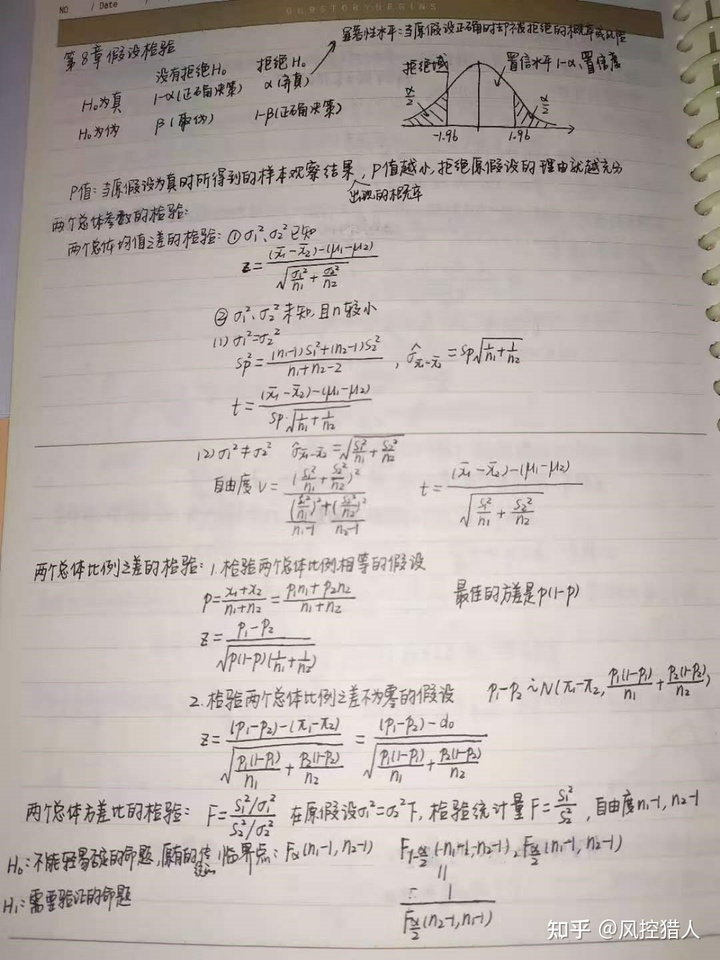 NO / Date
OURSTORYBEGINS
显著性水平:当原假设正确时却被拒绝的概率或风险
第8章假设检验
没有拒绝H₀ 拒绝H₀
H₀为真 1-α(正确决策) α(弃真)
H₀为伪 β(取伪) 1-β(正确决策)
拒绝域 置信水平1-α,置信度
α/2 α/2
-1.96 1.96
P值:当原假设为真时所得到的样本观察结果出现的概率,P值越小,拒绝原假设的理由就越充分
两个总体参数的检验:
两个总体均值之差的检验:①σ₁²、σ₂²已知
z=((x̄₁-x̄₂)-(μ₁-μ₂))/√(σ₁²/n₁+σ₂²/n₂)
②σ₁²、σ₂²未知且n较小
(1)σ₁²=σ₂²
Sp²=((n₁-1)S₁²+(n₂-1)S₂²)/(n₁+n₂-2),σ̂x̄₁-x̄₂=Sp√(1/n₁+1/n₂)
t=((x̄₁-x̄₂)-(μ₁-μ₂))/(Sp·√(1/n₁+1/n₂))
(2)σ₁²≠σ₂² σ̂x̄₁-x̄₂=√(S₁²/n₁+S₂²/n₂)
自由度v=(S₁²/n₁+S₂²/n₂)²/((S₁²/n₁)²/(n₁-1)+(S₂²/n₂)²/(n₂-1)) t=((x̄₁-x̄₂)-(μ₁-μ₂))/√(S₁²/n₁+S₂²/n₂)
两个总体比例之差的检验:1.检验两个总体比例相等的假设
P=(x₁+x₂)/(n₁+n₂)=(p₁n₁+p₂n₂)/(n₁+n₂) 最佳的方差是p(1-p)
z=(p₁-p₂)/√(p(1-p)(1/n₁+1/n₂))
2.检验两个总体比例之差不为零的假设 p₁-p₂~N(π₁-π₂,p₁(1-p₁)/n₁+p₂(1-p₂)/n₂)
z=((p₁-p₂)-(π₁-π₂))/√(p₁(1-p₁)/n₁+p₂(1-p₂)/n₂)=((p₁-p₂)-d₀)/√(p₁(1-p₁)/n₁+p₂(1-p₂)/n₂)
两个总体方差比的检验:F=(S₁²/σ₁²)/(S₂²/σ₂²) 在原假设σ₁²=σ₂²下,检验统计量F=S₁²/S₂²,自由度n₁-1,n₂-1
H₀:不能轻易否定的命题,原有的 临界点:Fα(n₁-1,n₂-1) F1-α/2(n₁-1,n₂-1),Fα/2(n₁-1,n₂-1)
H₁:需要验证的命题
= 1/Fα/2(n₂-1,n₁-1)
知乎 @风控猎人